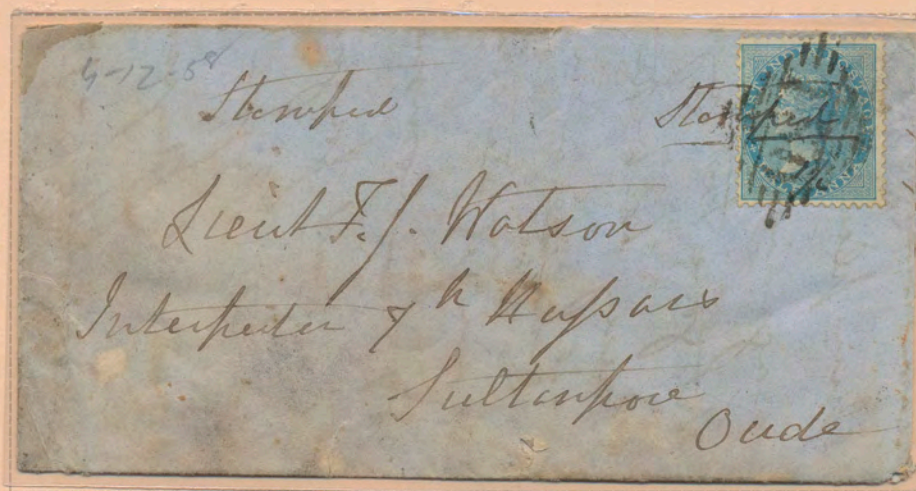 4-12-58
Stamped Stamped
Lieut F. J. Watson
Interpreter 7th Hussars
Sultanpore
Oude